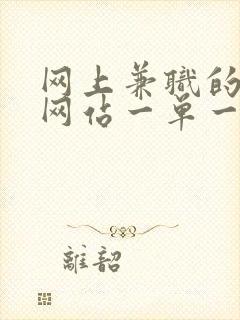 网上兼職的
网估一单一
離韶